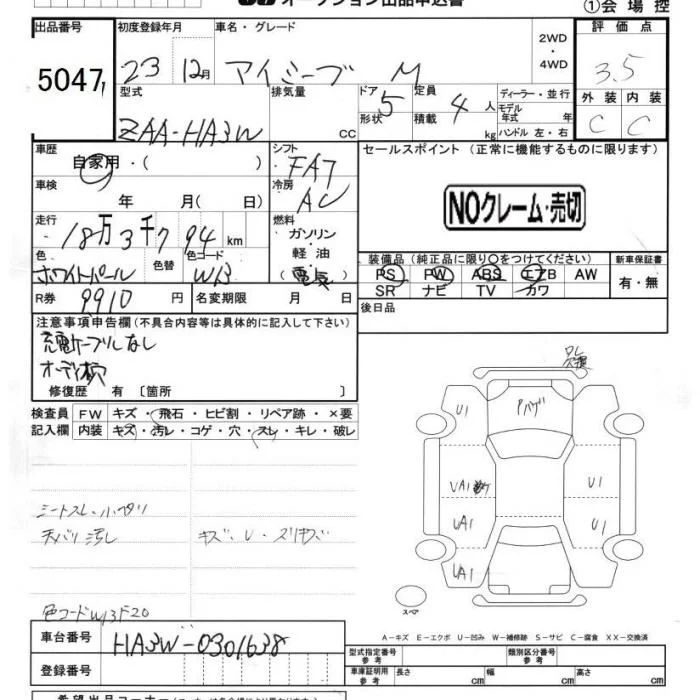 オークション出品申込書
①会場控
出品番号 初度登録年月 車名・グレード 2WD・4WD 評価点
5047 23 12月 アイミーブ M 3.5
型式 排気量 ドア形状 定員 積載 ディーラー・並行 外装 内装
ZAA-HA3W cc 5 4人 kg モデル年式 年 C C
ハンドル 左・右
車歴 シフト セールスポイント (正常に機能するものに限ります)
自家用・( ) FAT
車検 冷房 NOクレーム・売切
年 月( 日) AC
走行 燃料
18万3千794km ガソリン・軽油・(電気)
色 色替 色コード 装備品(純正品に限り○をつけてください) 新車保証書
ホワイトパール W13 PS PW ABS エアB AW 有・無
R券 9910円 名変期限 月 日 SR ナビ TV カワ
後日品
注意事項申告欄(不具合内容等は具体的に記入して下さい)
充電ケーブルなし
オーディオ穴
修復歴 有 〔箇所 〕
検査員 FW キズ・飛石・ヒビ割・リペア跡・×要
記入欄 内装 キズ・汚レ・コゲ・穴・スレ・キレ・破レ
シートスレ・小ヘタリ
天バリ汚レ キズ・U・スリキズ
色コードW13F20
U1
UA1 U1
UA1 U1
UA1
スペア
A-キズ E-エクボ U-凹み W-補修跡 S-サビ C-腐食 XX-交換済
車台番号 HA3W-0301638
登録番号
型式指定番号 参考 類別区分番号 参考
車庫証明用 参考 長さ cm 幅 cm 高さ cm
希望出品コーナー